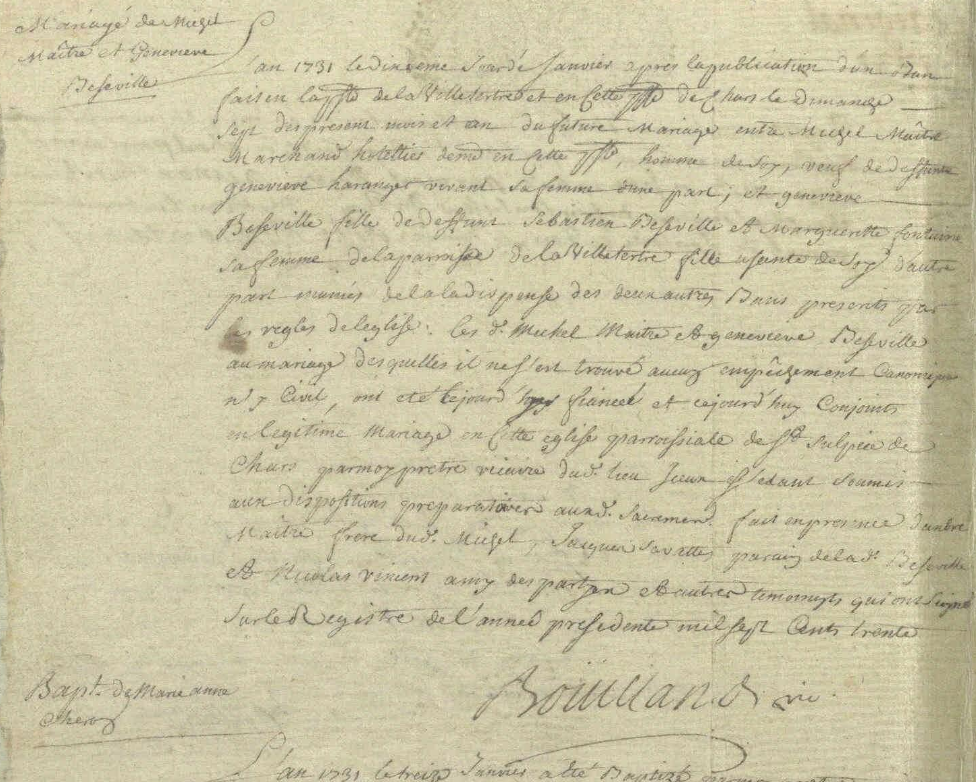 Mariage de Michel
Maître et Genevieve
Beseville
L'an 1731 le dixieme Jour de Janvier apres la publication d'un Ban
fait en la psse de la Villetertre et en Cette psse de Chars le dimanche
sept des present mois et an du future Mariage entre Michel Maître
Marchand hotellier demt en Cette psse, homme de soy, veuf de deffunte
genevieve haranger vivant sa femme d'une part; et genevieve
Beseville fille de deffunt Sebastien Beseville et Margueritte fontaine
sa femme de la paroisse de la Villetertre fille usante de soy d'autre
part munies de la dispense des deux autres Bans presents par
les regles de leglise. les d. Michel Maitre et genevieve Beseville
au mariage desquelles il ne s'est trouvé aucun empêchement Canonique
n'y Civil, ont été cejourd'huy fiancé et cejourd'huy Conjoints
en legitime Mariage en Cette eglise parroissiale de St Sulpice de
Chars par moy prêtre vicaire du d. lieu Iceux s'estant soumis
aux dispositions preparatoires au d. Sacrement. fait en presence d'
Maître frere du d. Michel, Jacques parain de la d. Beseville
et Nicolas Vincent amy des parties et autres temoings qui ont signé
sur le Registre de l'année presedente mil sept Cents trente
Boüilland vic.
Bapt. de Marie anne
L'an 1731 le treize Janvier a été Baptizé